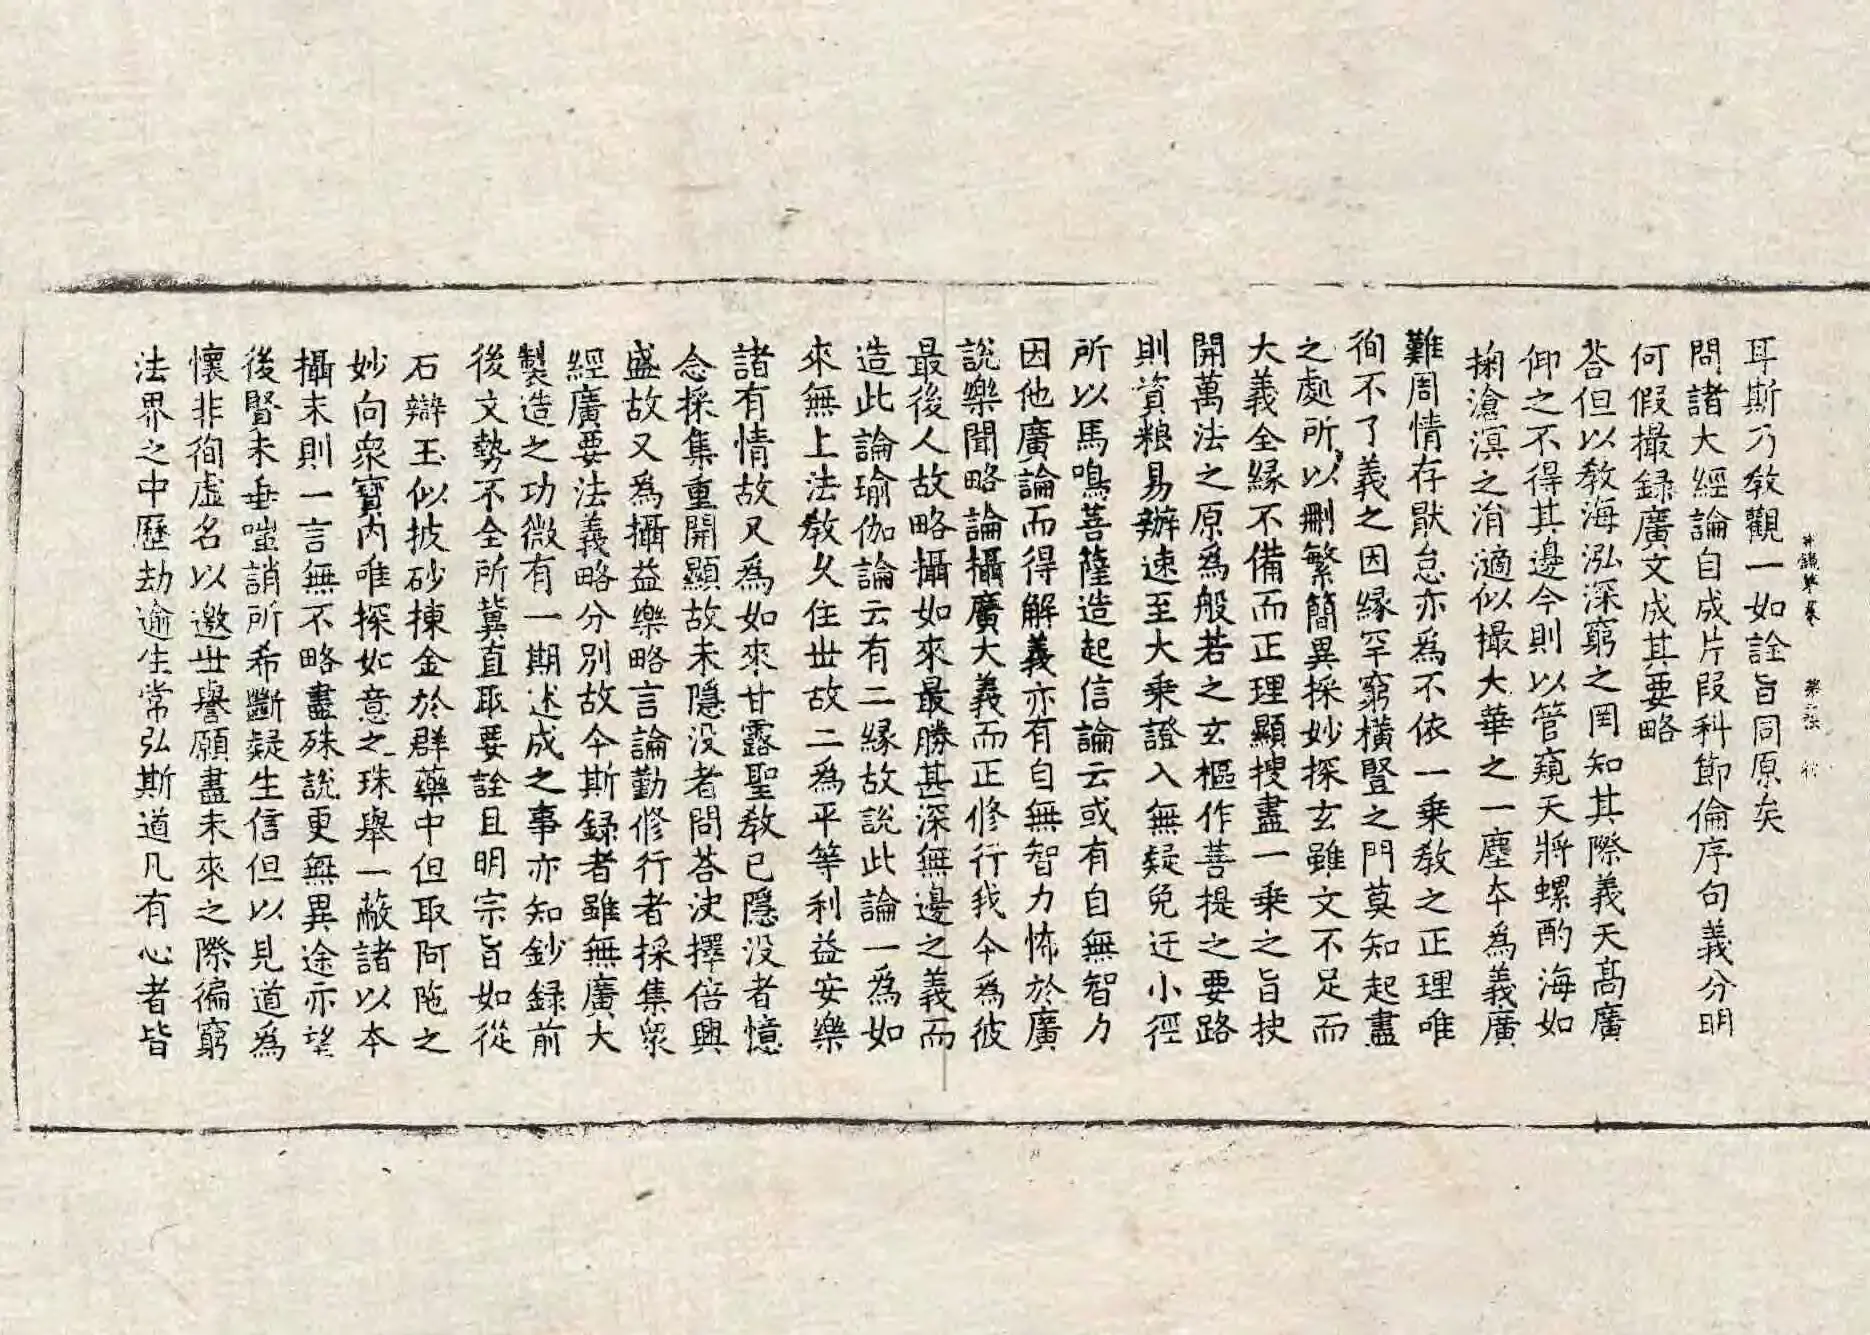 耳斯乃敎觀一如詮旨同原矣
問諸大經論自成片段科節倫序句義分明
何假撮録廣文成其要略
荅但以敎海泓深窮之罔知其際義天髙廣
仰之不得其邊今則以管窺天將螺酌海如
掬滄溟之涓滴似撮大華之一塵夲爲義廣
難周情存猒怠亦爲不依一乗敎之正理唯
徇不了義之因縁罕窮橫竪之門莫知起盡
之處所以刪繁簡異採妙探玄雖文不足而
大義全縁不備而正理顯搜盡一乗之旨抉
開萬法之原爲般若之玄樞作菩提之要路
則資粮易辦速至大乗證入無疑免迂小徑
所以馬鳴菩薩造起信論云或有自無智力
因他廣論而得解義亦有自無智力怖於廣
說樂聞略論攝廣大義而正修行我今爲彼
最後人故略攝如來最勝甚深無邊之義而
造此論瑜伽論云有二縁故說此論一爲如
來無上法敎久住丗故二爲平等利益安樂
諸有情故又爲如來甘露聖敎已隱没者憶
念採集重開顯故未隱没者問荅決擇倍興
盛故又爲攝益樂略言論勤修行者採集衆
經廣要法義略分別故今斯録者雖無廣大
製造之功微有一期述成之事亦知鈔録前
後文勢不全所冀直取要詮且明宗旨如從
石辯玉似披砂揀金於群藥中但取阿陁之
妙向衆寳内唯探如意之珠舉一蔽諸以本
攝末則一言無不略盡殊說更無異途亦望
後賢未垂嗤誚所希斷疑生信但以見道爲
懷非徇虚名以邀丗譽願盡未來之際徧窮
法界之中歷劫逾生常弘斯道凡有心者皆